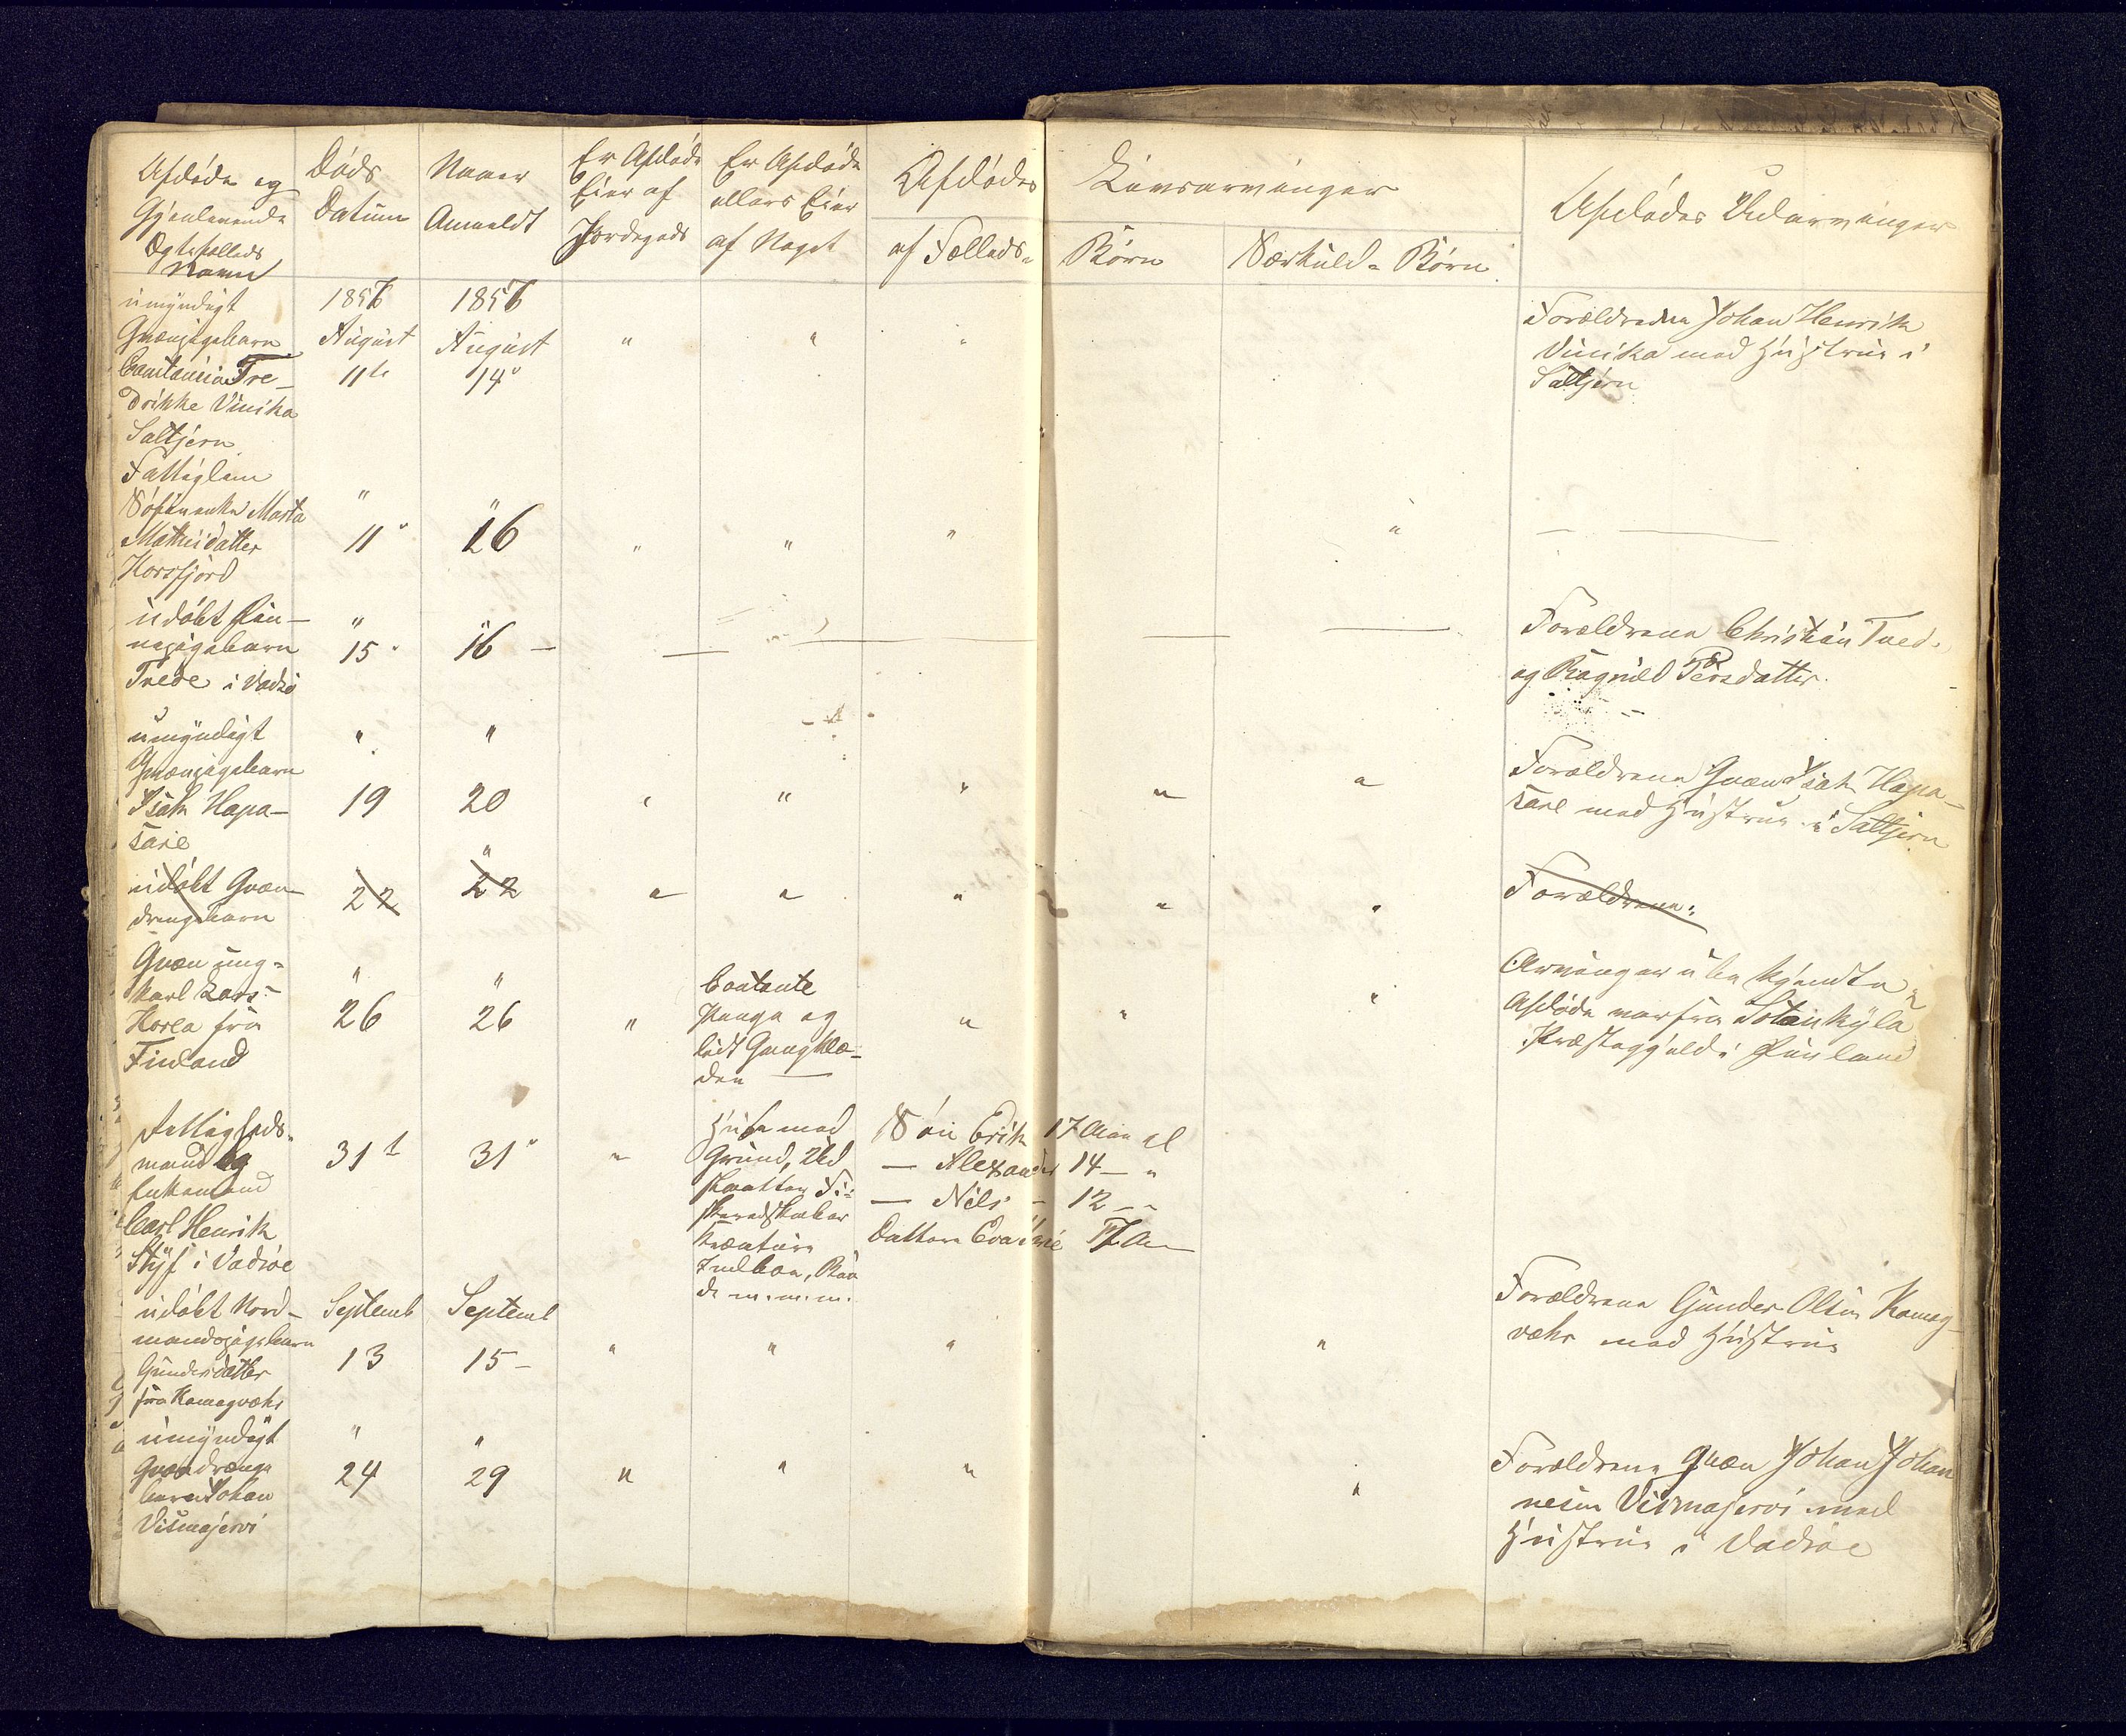 Afdøde og
Gjenlevende
Ægtefælleds
Navn
Døds
Datum
Naaer
Anmeldt
Er Afdøde
Eier af
Jordegods
Er Afdøde
ellers Eier
af Noget
Afdødes Livsarvinger
af Fælleds-
Børn
Særkuld-Børn
Afdødes Udarvinger
umyndigt
Qvænpigebarn
Constancia Fre-
drikke Vinika
Saltjern
1856
August
11te
1856
August
14
"
"
"
Forældrene Johan Henrik
Vinika med Hustrue i
Saltjern
Fattiglem
Søfinenke Marta
Mathisdatter
Korsfjord
"
11
"
16
"
"
"
"
— —
udøbt Fin-
nepigebarn
Tvede i Vadsø
"
15
"
16 —
—
—
—
—
Forældrene Christian Tved.
og Ragnild Persdatter.
umyndigt
Qvænpigebarn
Isak Hapa-
saie
"
19
"
20
"
"
"
"
"
Forældrene Qvæn Isak Hapa-
saie med Hustrue i Saltjern
udøbt Qvæn-
drengebarn
22
"
22
"
"
"
"
"
Forældrene:
Qvæn ung-
karl Lars
Korea fra
Finland
"
26
"
26
"
Contante
Penge og
lidt Gangklæ-
der —
"
"
"
Arvinger ube kjendte
Afdøde var fra Sotankyla
Præstegjeld i Finland
Fattigfeds-
mand og
Enkemand
Carl Henrik
Styf i Vadsøe
31t
31
"
Huse med
Grund,
Fi-
skeredskaber
Kreature
Indboe,
m.m.m.
Søn Erik 17 Aar gl
— Alexander 14 — "
— Nils — 12 — "
Datter Eva
udøbt Nord-
mandspigebarn
Gundersdatter
fra Komagvær
Septemb
13
Septemb
15 —
"
"
"
"
Forældrene Gunder Olsen Komag-
vær med Hustrue
umyndigt
Qvændrenge
barn Johan
Vismajervi
"
24
"
29
"
"
"
"
Forældrene Qvæn Johan Johan
nesen Vismajervi med
Hustrue i Vadsøe